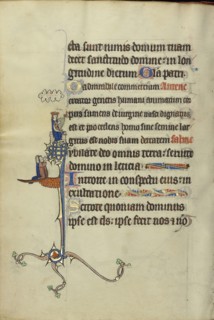 cta sunt nimis domum tuam
decet sanctitudo domine: in lon
gitudine dierum Gloria patri
O admirabile commercium Antene
creator generis humani animatum co
pus sumens de virgine nasci dignatus
est et procedens homo sine semine lar
gitus est nobis suam deitatem
Jubilate deo omnis terra: servite
domino in leticia
Introite in conspectu eius: in
exultatione
Scitote quoniam dominus
ipse est deus: ipse fecit nos et no